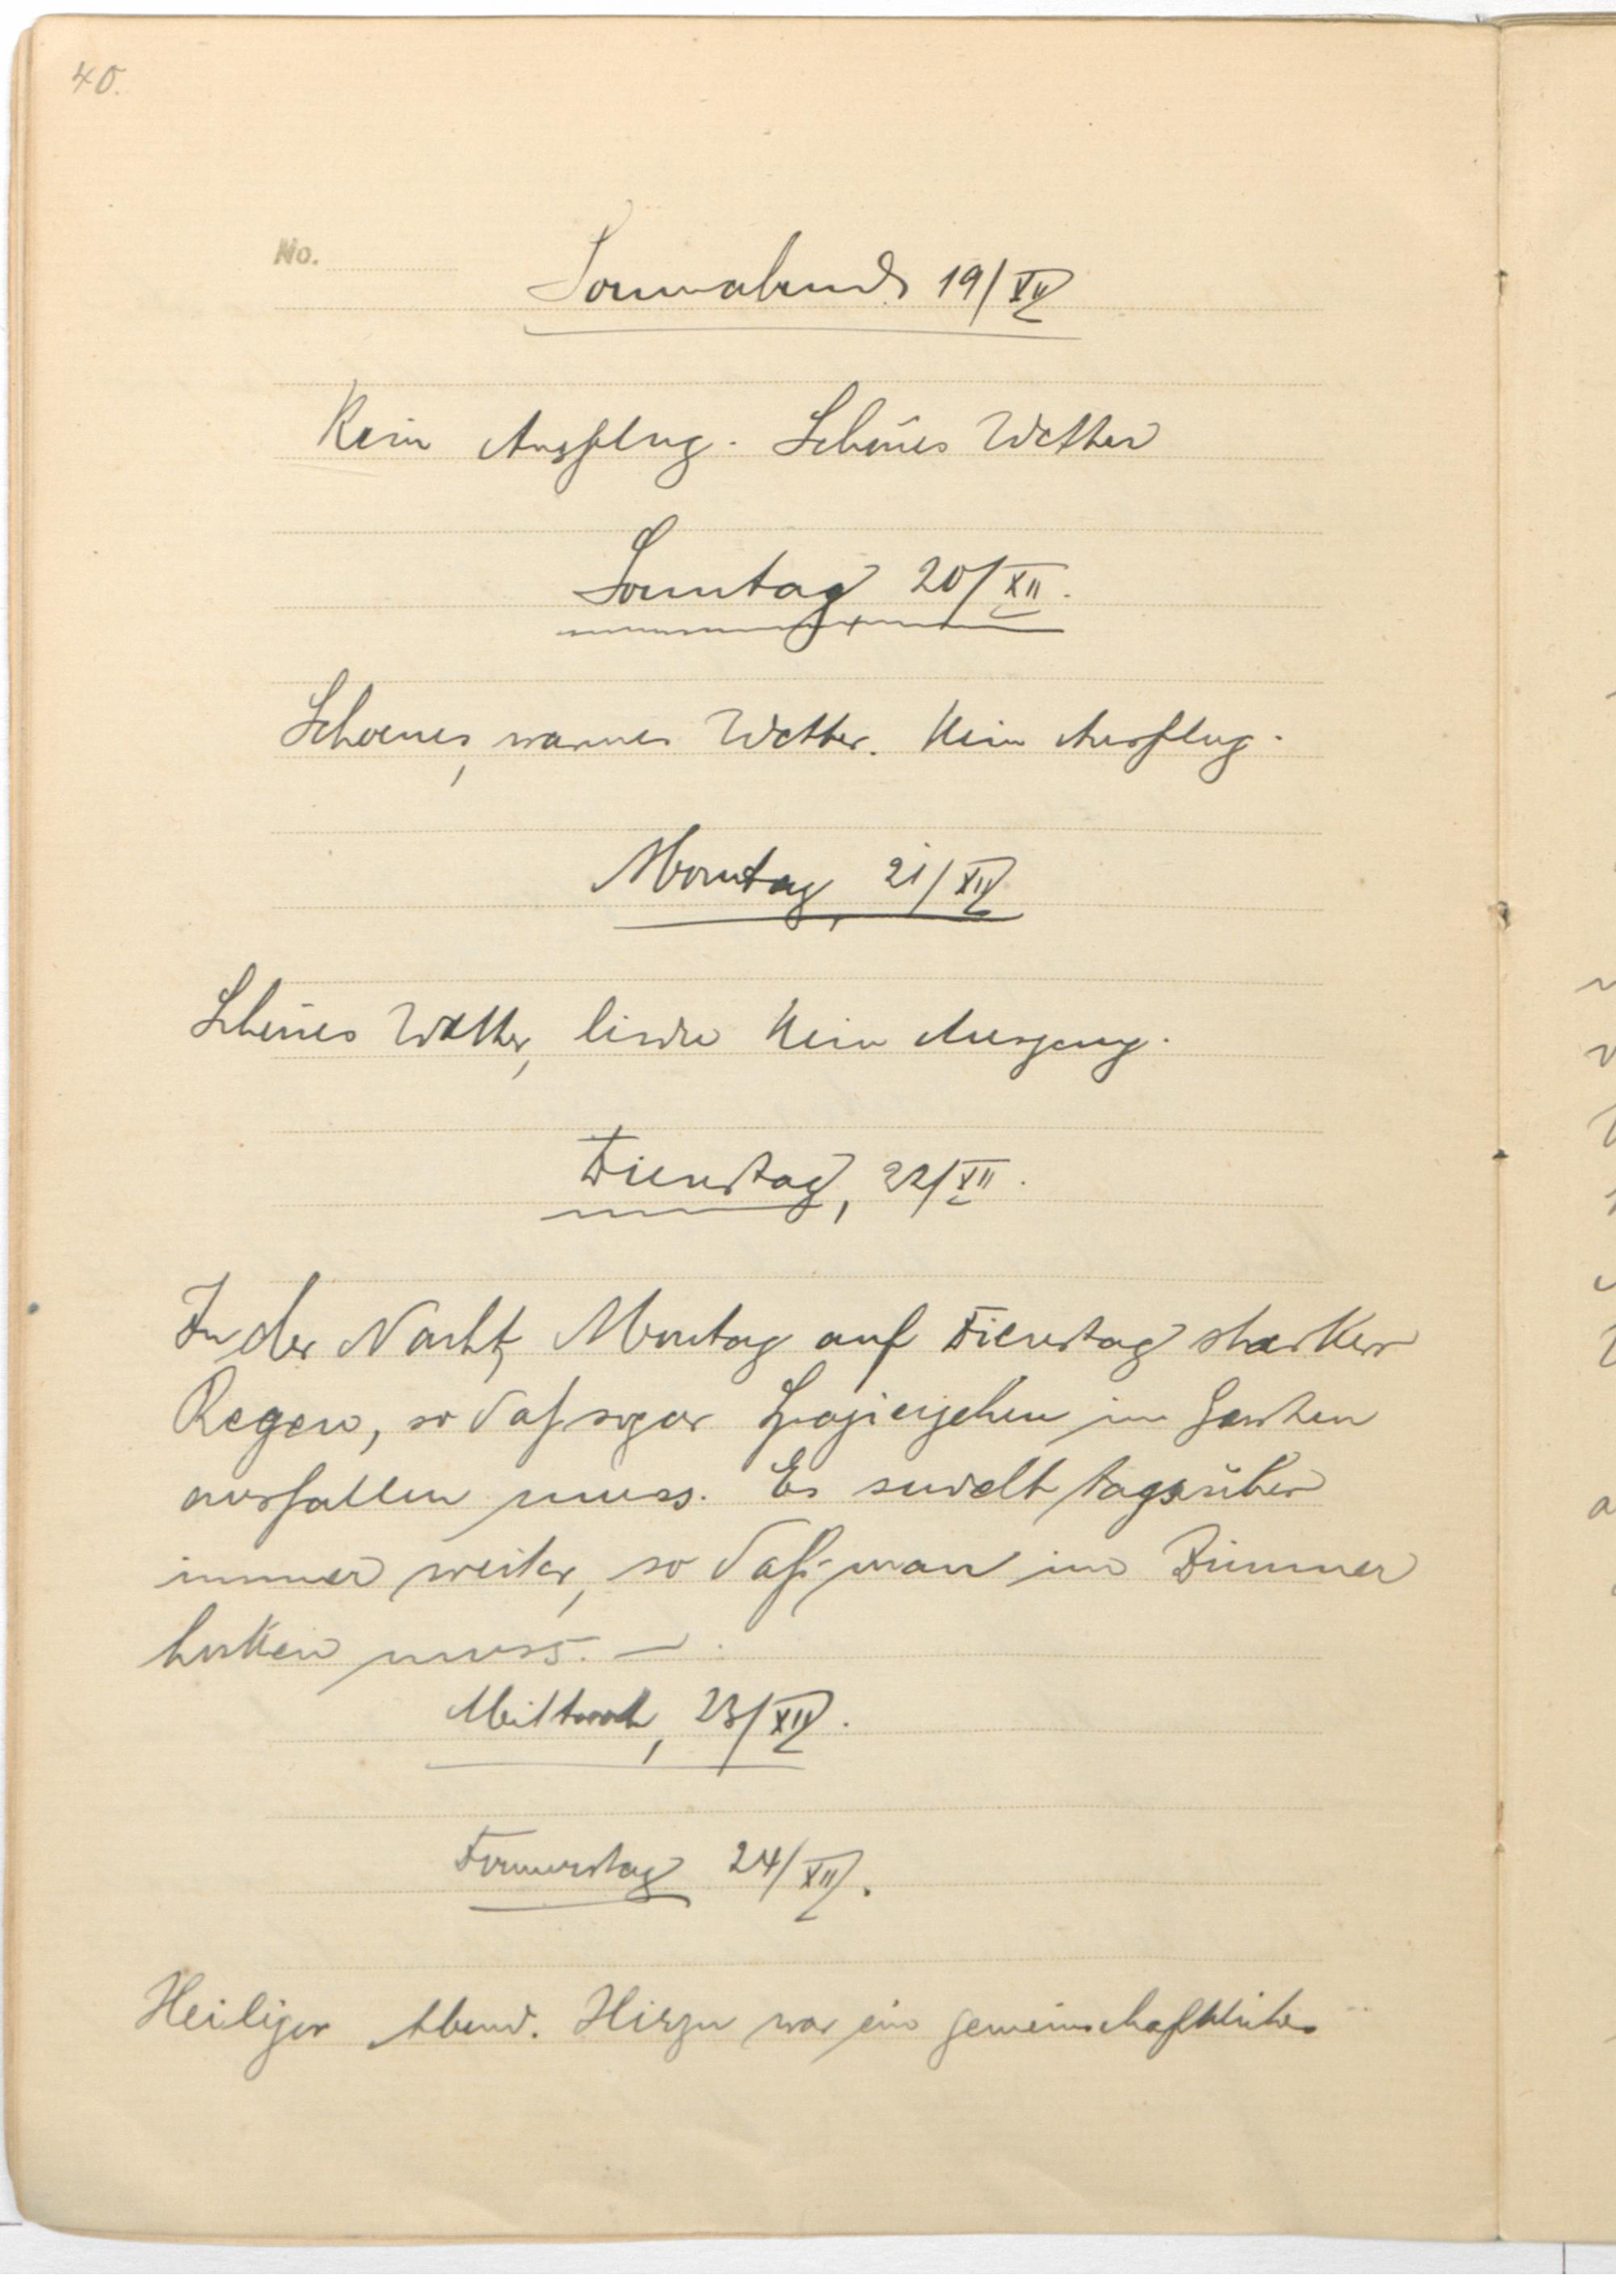 40.
No.
Sonnabend 19/XII
Kein Ausflug. Schönes Wetter
Sonntag 20/XII.
Schoenes, warmes Wetter. Kein Ausflug.
Montag, 21/XII
Schönes Wetter, linde Kein Ausgang.
Dienstag, 22/XII.
In der Nacht, Montag auf Dienstag starker
Regen, so daß sogar Spaziergehen im Garten
ausfallen muss. Es sudelt tagsüber
immer weiter, so daß man im Zimmer
hocken muss. —.
Mittwoch, 23/XII.
Donnerstag 24/XII.
Heiliger Abend. Hierzu war ein gemeinschaftliches